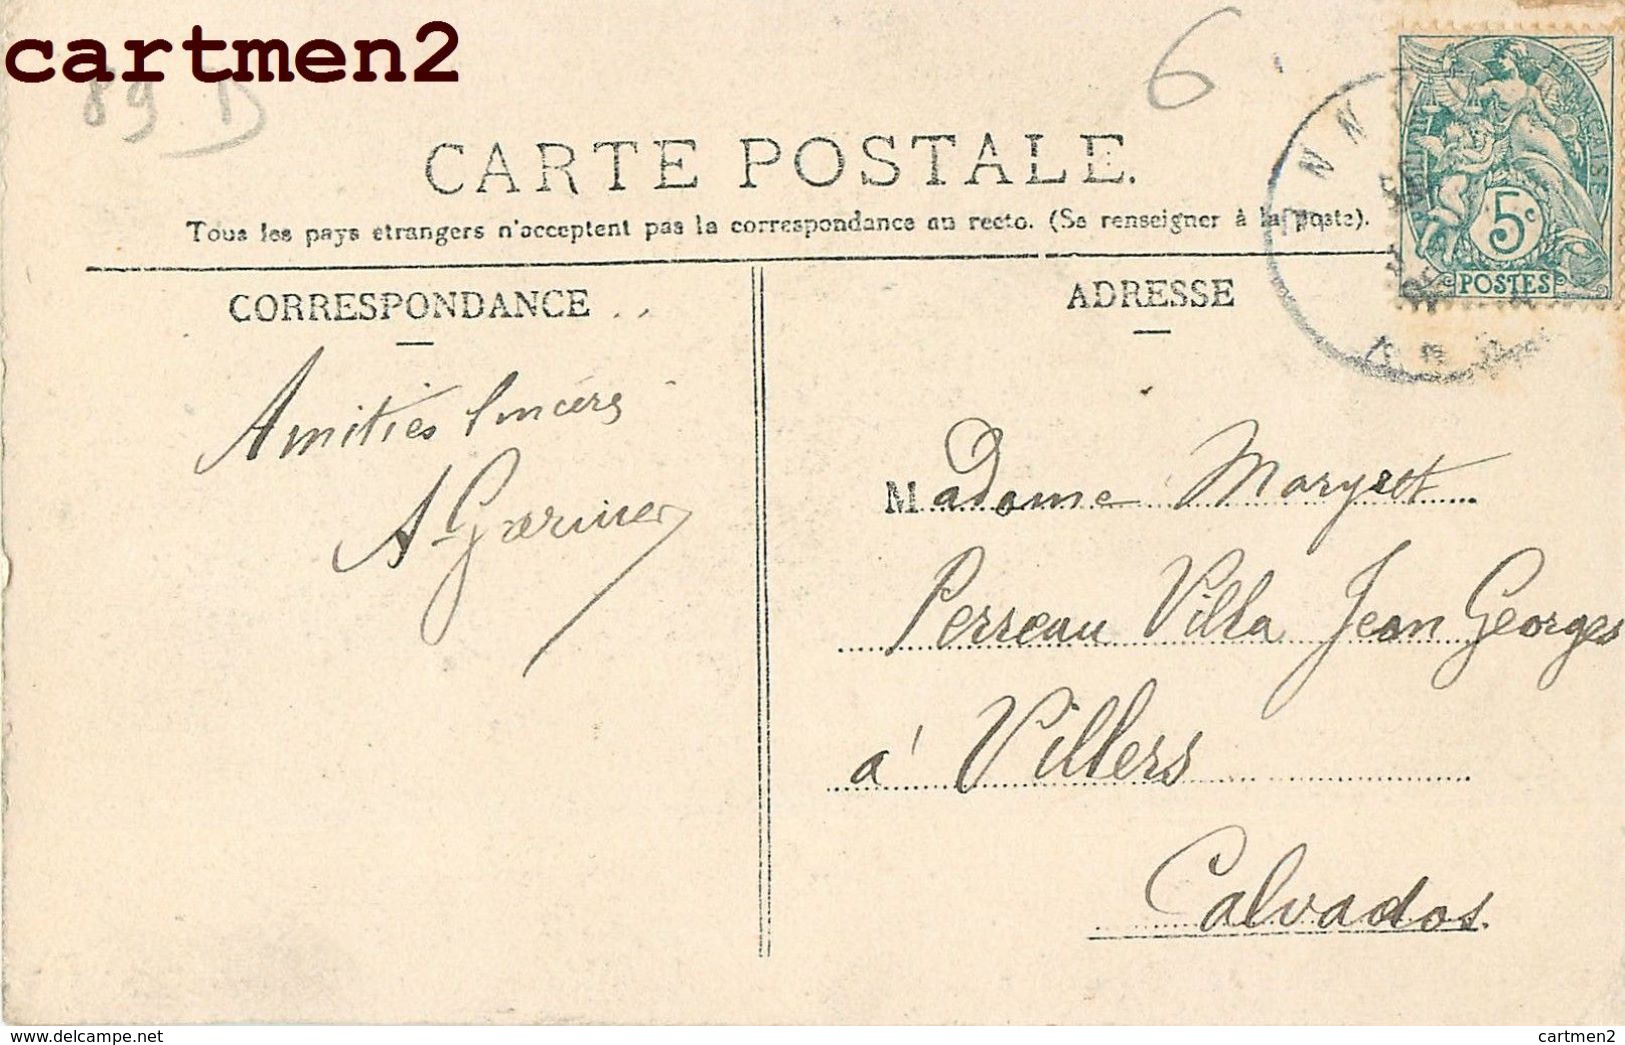 cartmen2
89 D
6
CARTE POSTALE.
Tous les pays etrangers n'acceptent pas la correspondance au recto. (Se renseigner à la poste).
CORRESPONDANCE
ADRESSE
5c
POSTES
Amitiés Sincères
A. Garinier
Madame Maryett
Perreau Villa Jean Georges
à Villers
Calvados.
www.delcampe.net
cartmen2